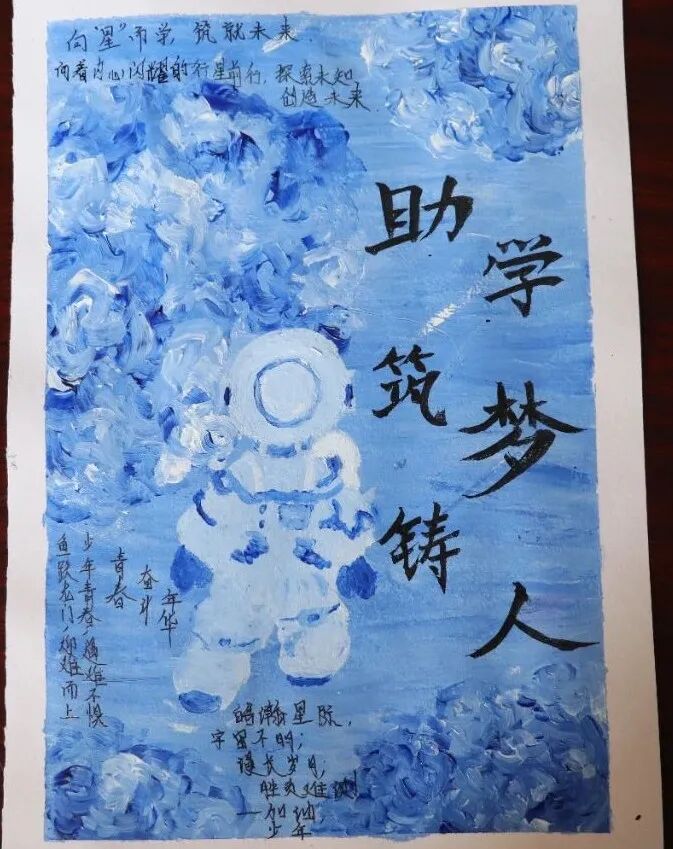 向"星"而学,筑就未来.
向着内心闪耀的行星前行,探索未知,
创造未来.
助学
筑梦
铸人
青春
奋斗
年华
少年青春,遇难不惧
鱼跃龙门,迎难而上
瀚星际,
宇宙不明;
漫长岁月,
难
少年